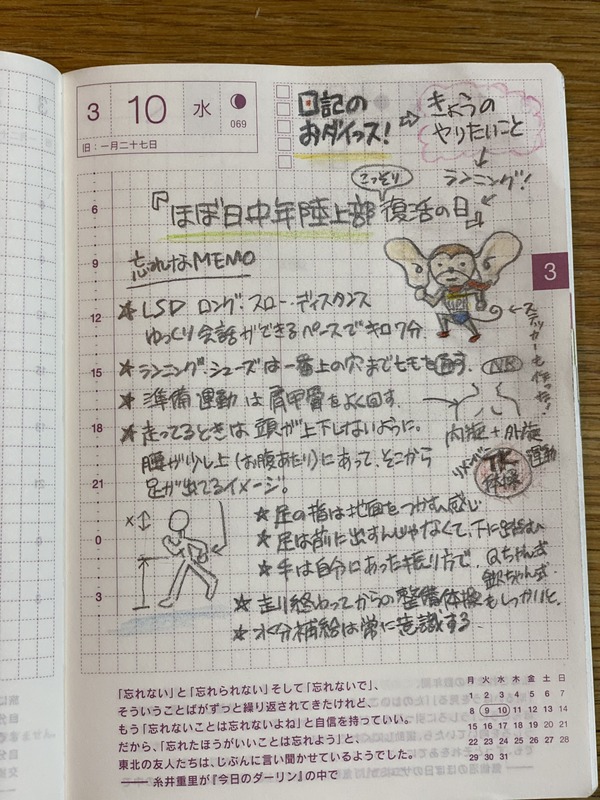 3 10 水
069
旧：一月二十七日
日記の
おダイフス！
⇨
きょうの
やりたいこと
↓
ランニング！
こっそり
『ほぼ日中年陸上部 復活の日』
忘れなMEMO
★LSD ロング・スロー・ディスタンス
ゆっくり会話ができるペースでキロ7分.
★ランニング・シューズは一番上の穴までヒモを通す.
★準備運動は肩甲骨をよく回す.
内旋+外旋
運動
★走ってるときは頭が上下しないように。
腰が少し上(お腹あたり)にあって、そこから
足が出てるイメージ。
ステッカーも作った！
リメンバー
TK
体操
★足の指は地面をつかむ感じ
★足は前に出すんじゃなくて、下に踏む
★手は自分にあった振り方で.
Qちゃん式
欽ちゃん式.
★走り終わってからの整備体操もしっかりと.
★水分補給は常に意識する.
6
9
12
15
18
21
0
3
3
「忘れない」と「忘れられない」そして「忘れないで」、
そういうことばがずっと繰り返されてきたけれど、
もう「忘れないことは忘れないよね」と自信を持っていい。
だから、「忘れたほうがいいことは忘れよう」と、
東北の友人たちは、じぶんに言い聞かせているようでした。
―― 糸井重里が『今日のダーリン』の中で
月 火 水 木 金 土 日
1 2 3 4 5 6 7
8 9 10 11 12 13 14
15 16 17 18 19 20 21
22 23 24 25 26 27 28
29 30 31